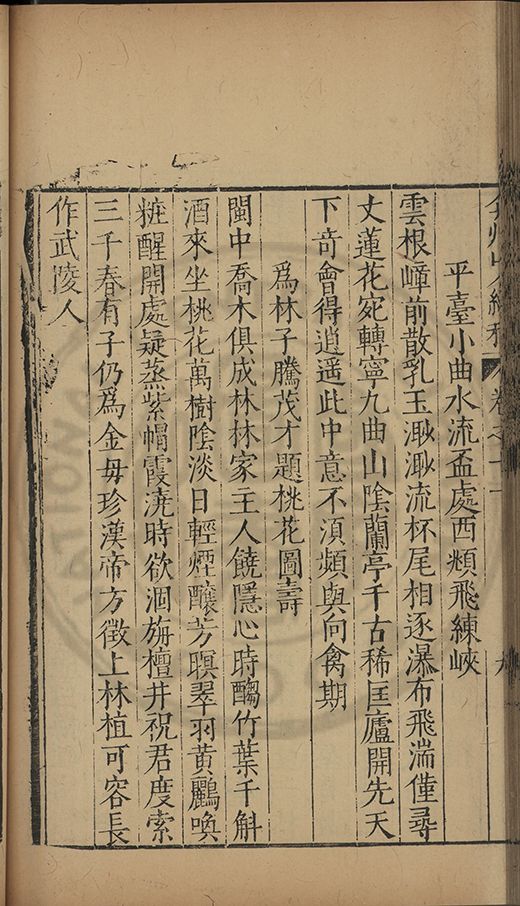 弇州山人續稿 卷之十一 九
平臺小曲水流盃處西頫飛練峽
雲根嶂前散乳玉泖泖流杯尾相逐瀑布飛湍僅尋
丈蓮花宛轉寧九曲山陰蘭亭千古稀匡廬開先天
下奇會得逍遥此中意不湏頻與向禽期
爲林子騰茂才題桃花圖壽
閩中喬木俱成林林家主人饒隱心時酾竹葉千斛
酒來坐桃花萬樹陰淡日輕煙釀芳暝翠羽黃鸝喚
粧醒開處疑蒸紫帽霞澆時欲涸旃檀井祝君度索
三千春有子仍爲金母珍漢帝方徵上林植可容長
作武陵人